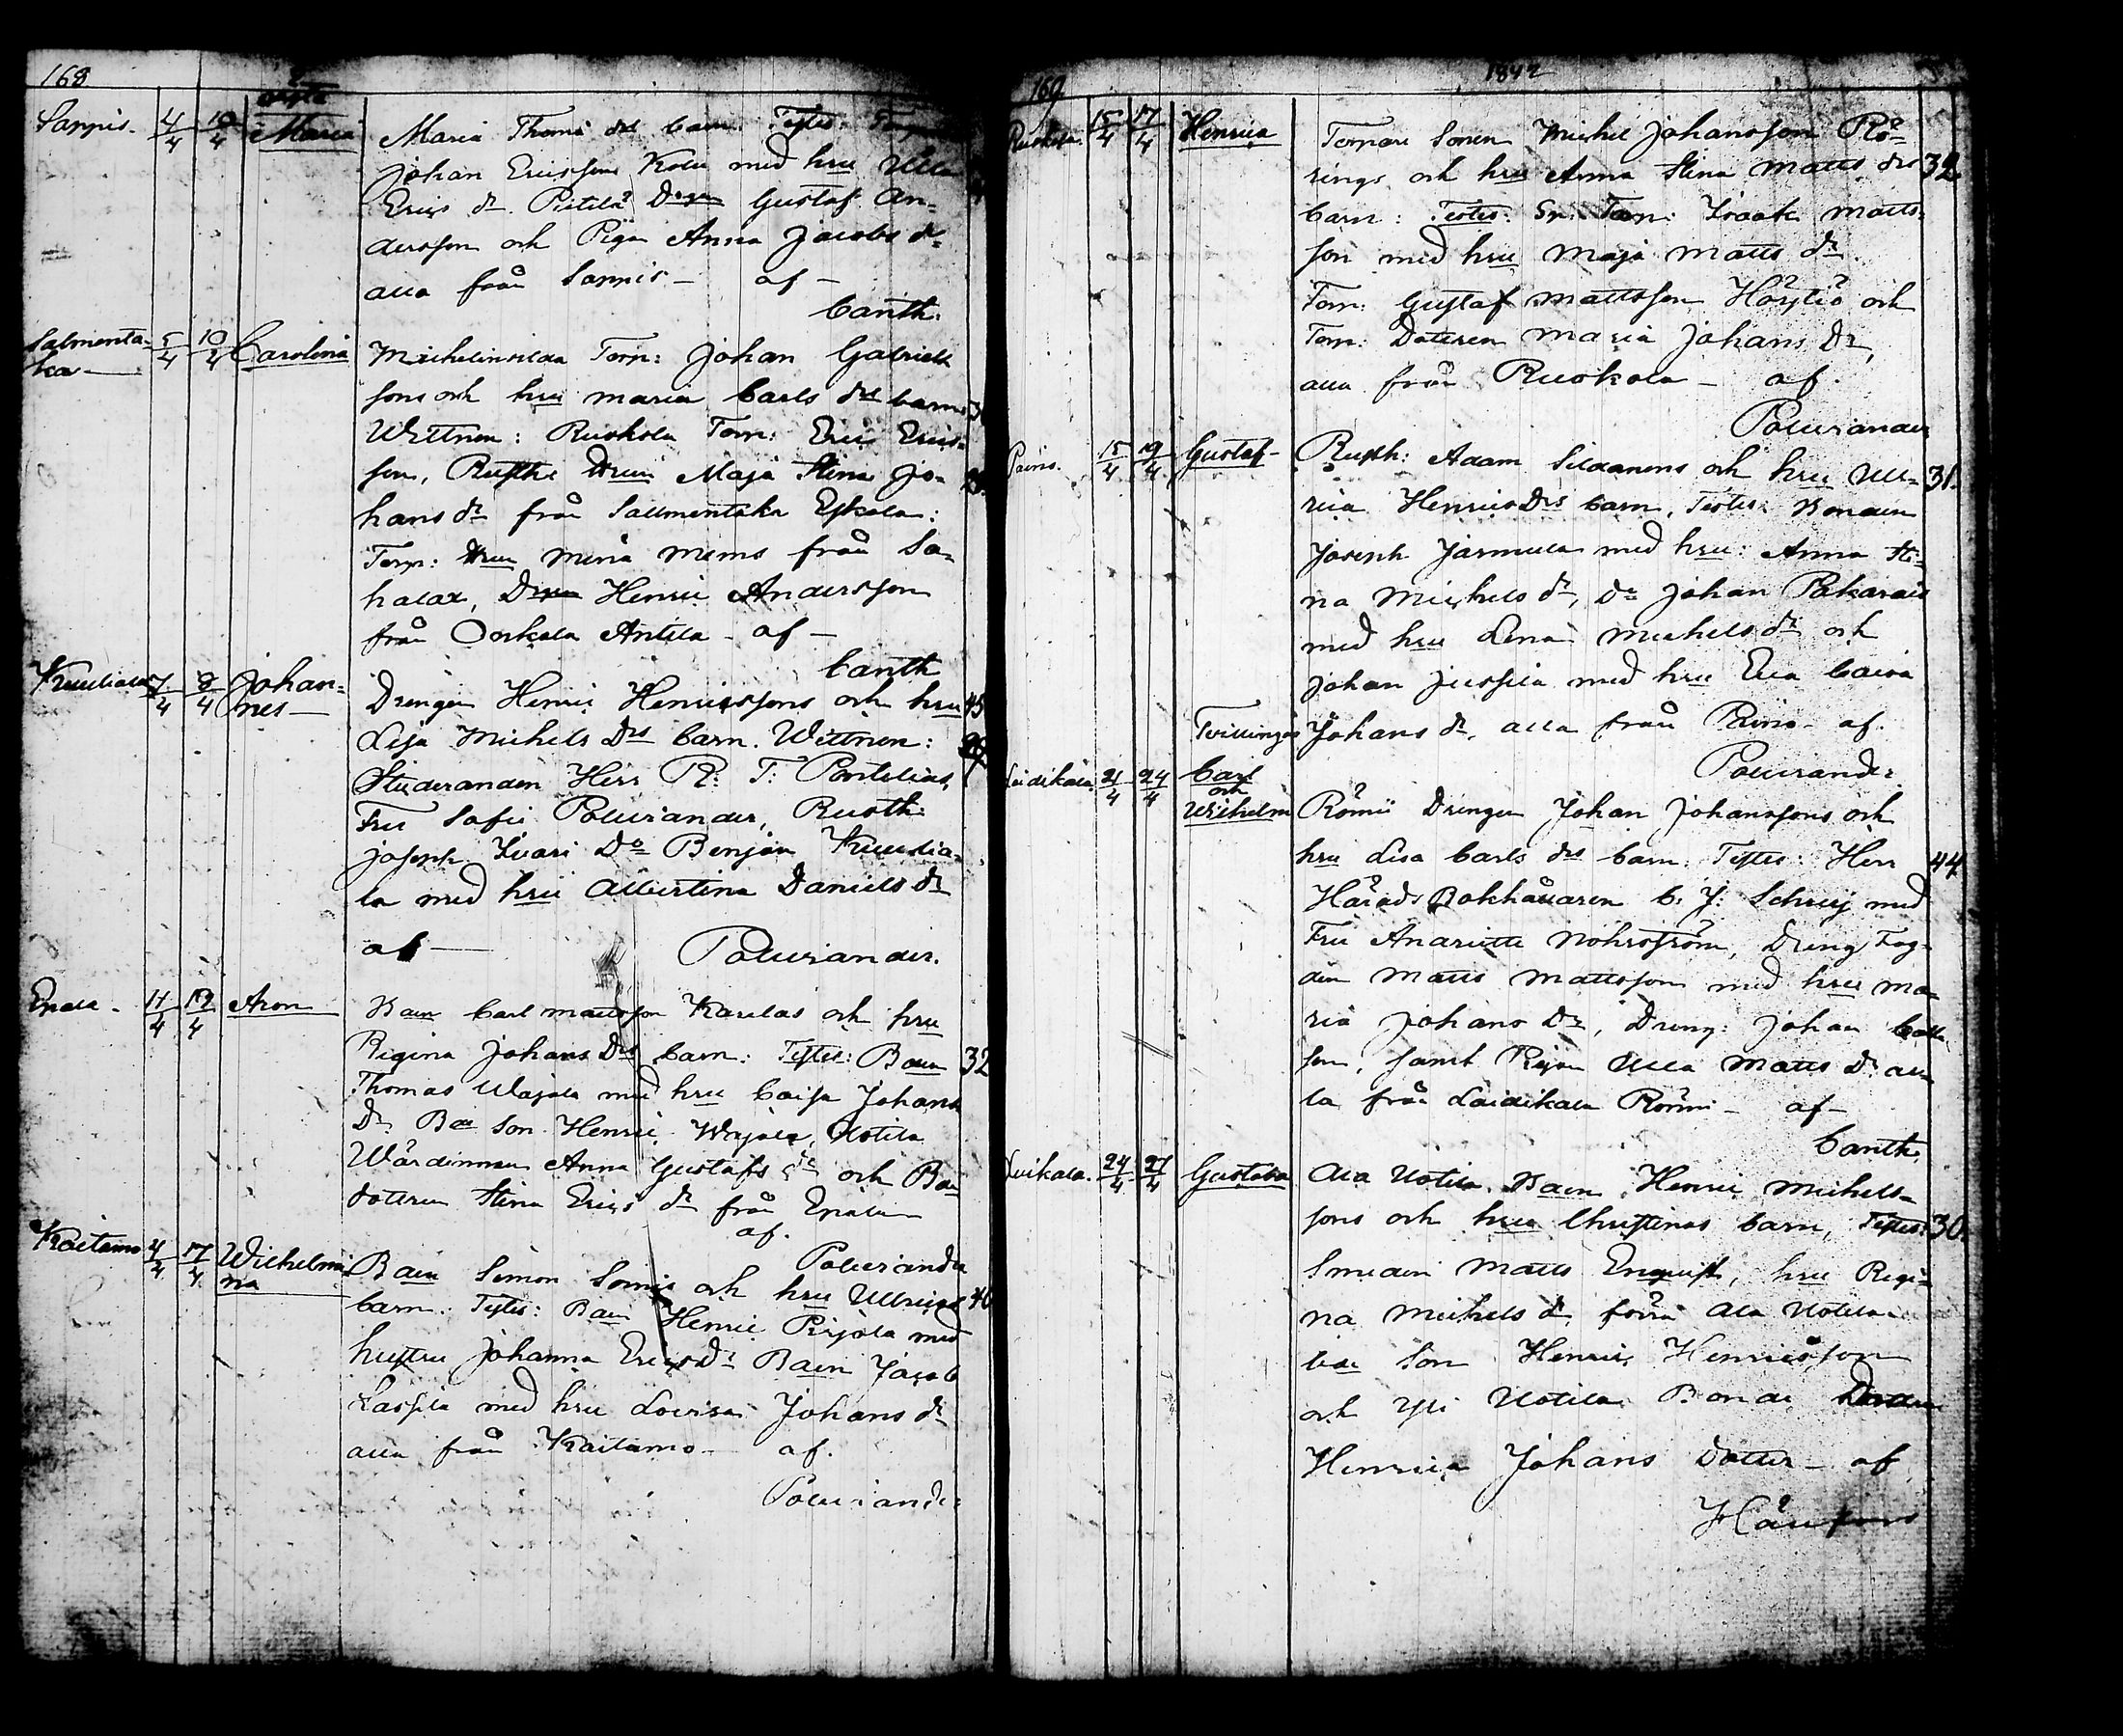 168
oägta
Sarpis. 4/4 10/4 Maria Maria Thomæ drs barn. Testes:
Johan Ericsson Kolu med hru Ulla
Erics dr. Pitilä? Dräng Gustaf An-
dersson och Pigan Anna Jacobs dr
alla från Sarpis - af -
Canth.
Salmenta- 5/4 10/4 Carolina Torp: Johan Gabriels
ka - sons och hru Maria Carls drs barn
Wittnen: Ruokola Torp: Eric Erics-
son, Rusth. Maja Stina Jo-
hans dr från Sallmentaka Eskola:
Torp: Mems från Sa-
halax, Henric Andersson
från Onkala Antila - af -
Canth
Kuuliala 7/4 8/4 Johan- Drengen Henric Henricssons och hru 45
nes - Lisa Michels Drs barn. Wittnen:
Studeranden Herr R: T: Pontelius,
Fru Sofie Polviander, Rusth:
Joseph Iivari Do Benjam Kuulia-
la med hru Albertina Daniels dr
af - Polviander.
Epala - 11/4 12/4 Aron Bdn Carl Mattsson Karilas och hru
Regina Johans Drs barn: Testes: Bdn 32
Thomas Wajola med hru Caisa Johans
Dr. Bde Son Henric Wajola, Uotila
Wärdinnan Anna Gustafs dr och Bde
dottren Stina Erics dr från Epala
af.
Polviander
Kaitamo 4/4 17/4 Wilhelmi- Bdn Simon och hru Ulricas 40
na barn: Testes: Bdn Henric Pirjola med
hustru Johanna Erics Dr Bdn Jacob
Lassila med hru Lovisa Johans dr
alla från Kaitamo - af.
Polviander
169 1842
Ruokola. 15/4 17/4 Henrica Torpare Sonen Michel Johansson Rö-
rings och hru Anna Stina Matts drs 32
barn: Testes: Sn. Torp: Isaak Matts-
son med hru Maja Matts dr
Torp: Gustaf Mattsson Höytiö och
Torp: Dottren Maria Johans Dr,
alla från Ruokola - af.
Polviander
Painis. 15/4 19/4 Gustaf - Rusth: Adam Sildanens och hru Ull- 31.
rica Henrics Drs barn, Testes: Bonden
Joseph Järmula med hru: Anna Sti-
na Michels dr, Do Johan Pakarais
med hru Lena Michels dr och
Johan Jussila med hru Eva Caisa
Tvillingar Johans dr, alla från Painis - af.
Polviander
Laidikala 21/4 24/4 Carl
och
Wilhelm Römii Drengen Johan Johanssons och
hru Lisa Carls drs barn. Testes: Herr 44
Härads Bokhållaren C. J: med
Fru Nohrström, Dreng Fog-
den Matts Mattsson med hru Ma-
ria Johans Dr, Dreng: Johan
son, samt Pigan Ulla Matts Dr al-
la från Laidikala Römi - af -
Canth.
Luikala. 24/4 27/4 Gustava Ala Uotila Bdn Henric Michels-
sons och hru Christinas barn, Testes: 30.
Smeden Matts Enqvist, hru Regi-
na Michels dr, förra Ala Uotila
bde Son Henric Henricsson
och Yli Uotila Bonde Dottren
Henrica Johans Dotter - af